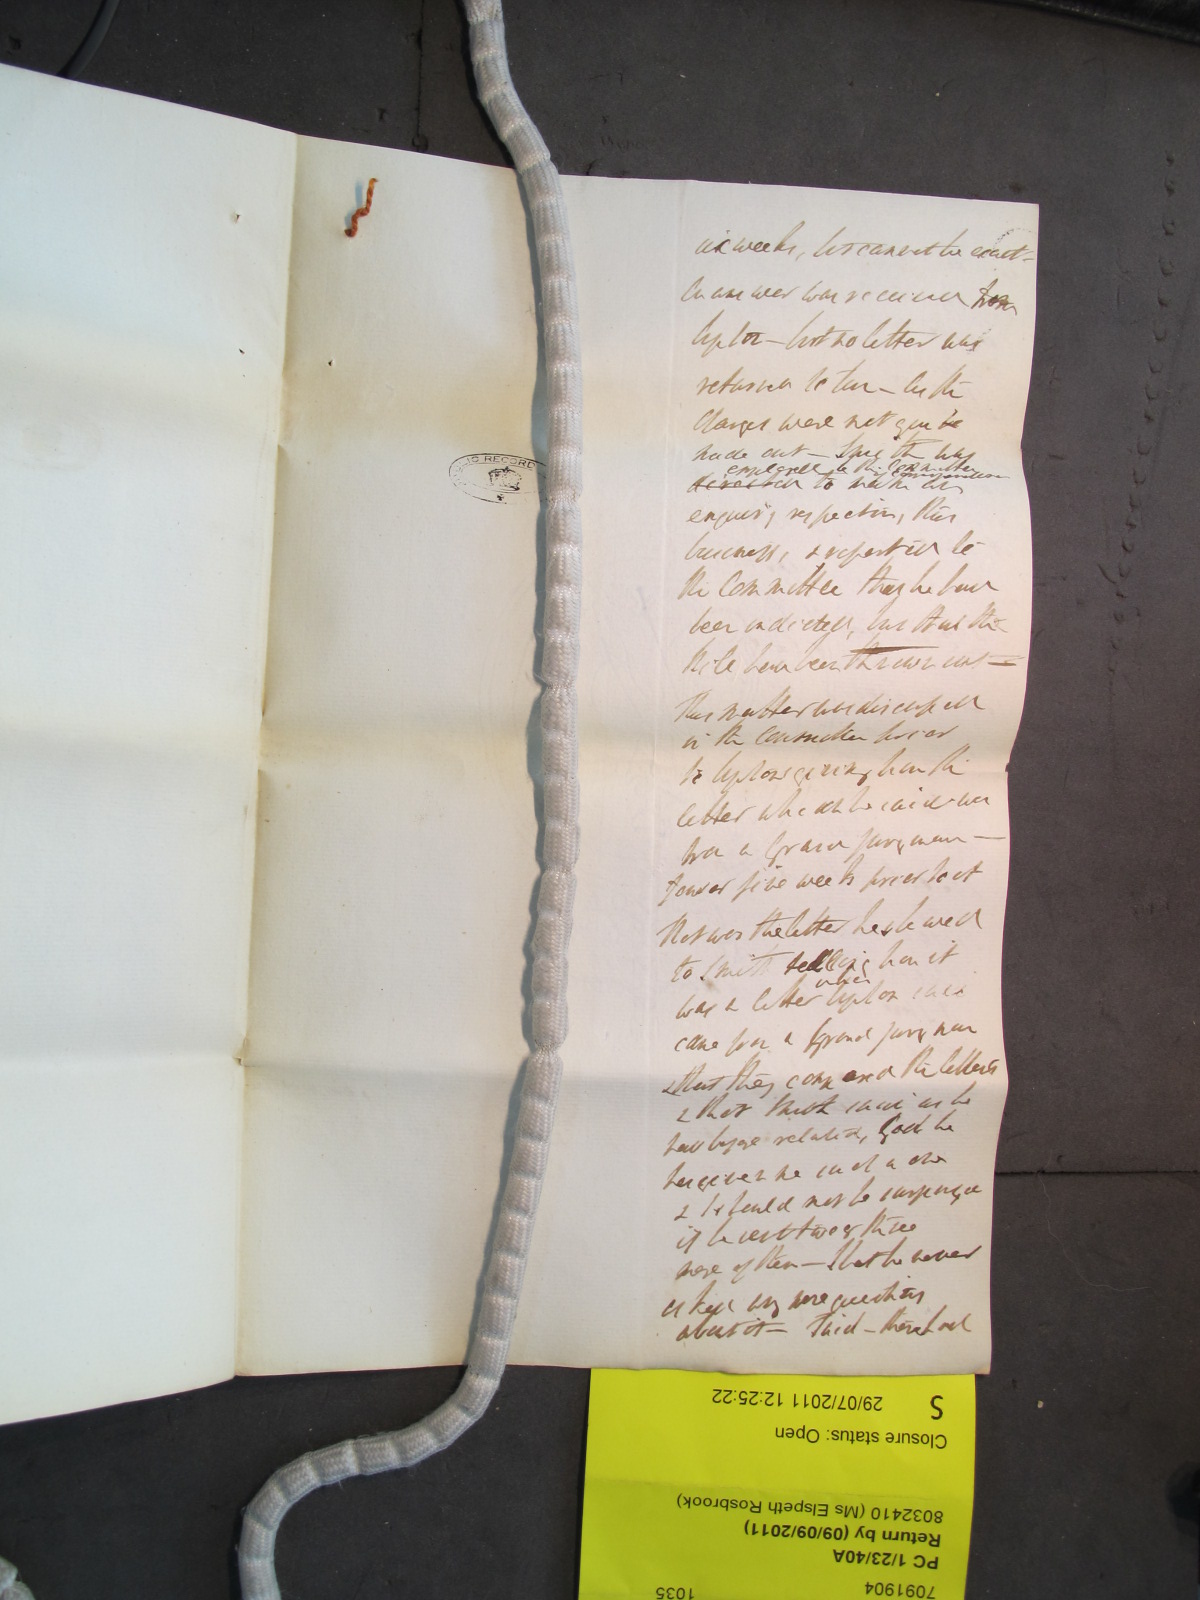 six weeks, but cannot be exact—
An answer was received from
Upton — but no letter was
returned to him — As the
Charges were not quite
made out — Smith was
employed by the Committee
to make
enquiry respecting this
business, & reported to
the Committee that he had
been indicted, but that the
Bill had been thrown out —
This matter was discussed
in the Committee prior
to Upton giving him the
letter which he said was
from a Grand juryman —
four or five weeks prior to it
That was the letter he shewed
to Smith telling him it
was a letter which Upton said
came from a Grand juryman
& that they compared the letters
& that Smith said as he
has before related, God he
forgive me such a one
& I should not be surprized
if he sent two or three
more of them — That he never
asked any more questions
about it — Said — there had
PUBLIC RECORD
S
29/07/2011 12:25:22
Closure status: Open
8032410 (Ms Elspeth Rosbrook)
Return by (09/09/2011)
PC 1/23/40A
7091904 1035